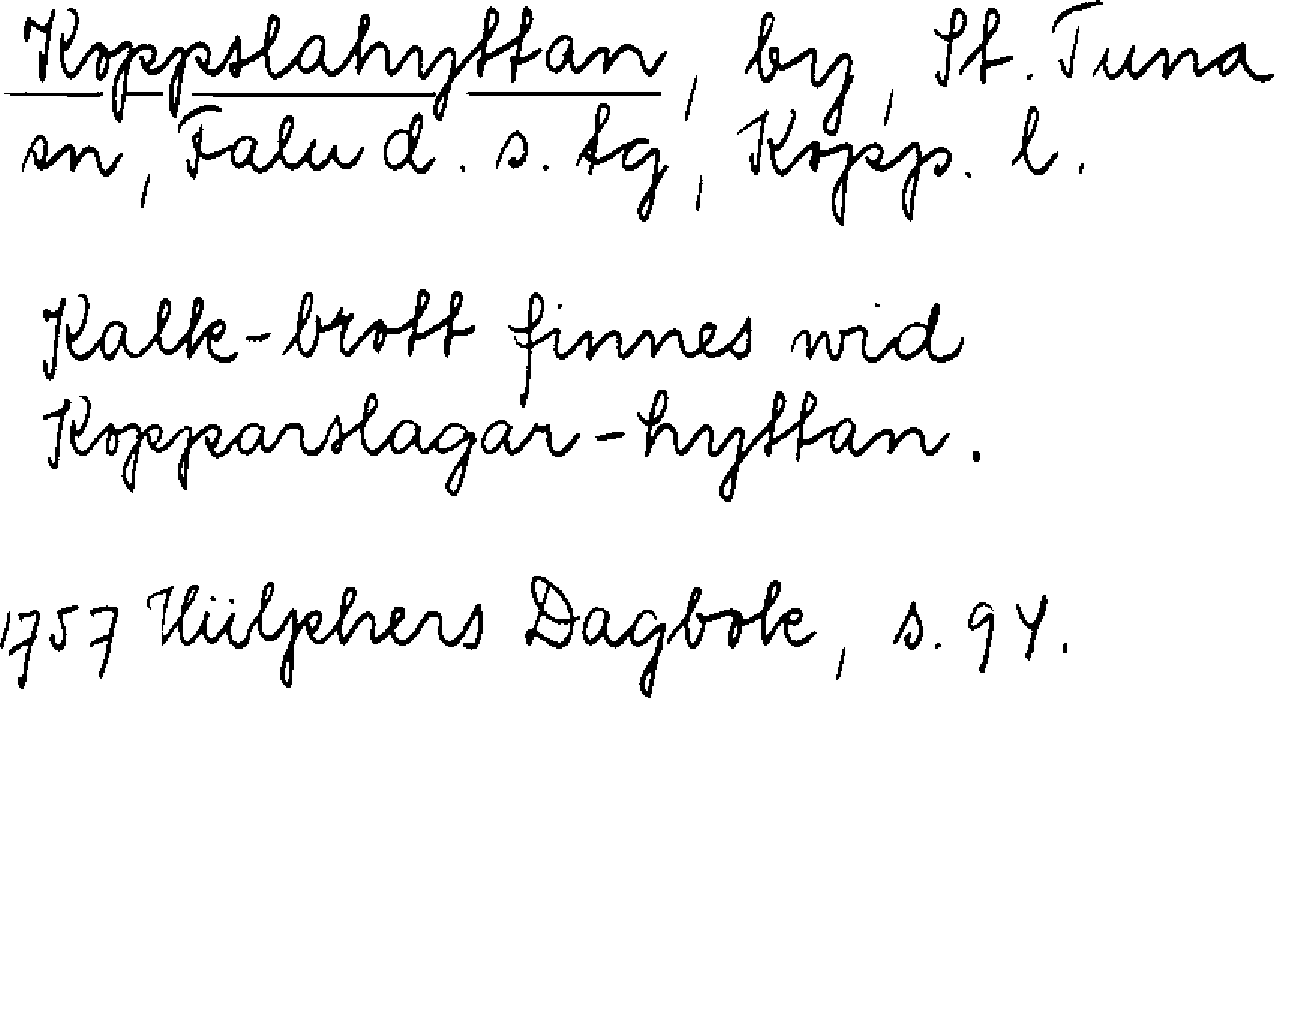 Koppslahyttan, by, St. Tuna
sn, Falu d. s. tg, Kopp. l.
Kalk-brott finnes wid
Kopparslagar-hyttan.
1757 Hülphers Dagbok, s. 94.